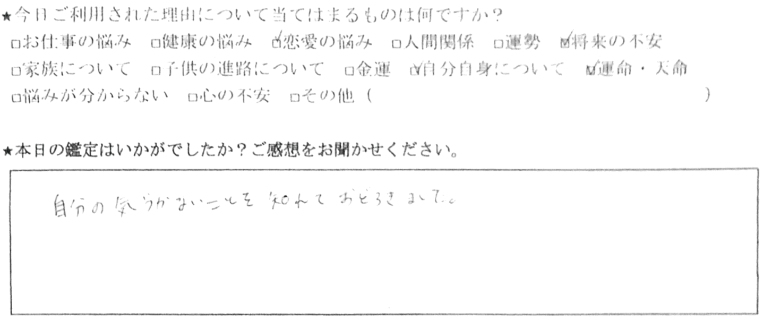 ★今日ご利用された理由について当てはまるものは何ですか？
□お仕事の悩み □健康の悩み ☑恋愛の悩み □人間関係 □運勢 ☑将来の不安
□家族について □子供の進路について □金運 ☑自分自身について ☑運命・天命
□悩みが分からない □心の不安 □その他（ ）
★本日の鑑定はいかがでしたか？ご感想をお聞かせください。
自分の気づかないことを知れておどろきました。